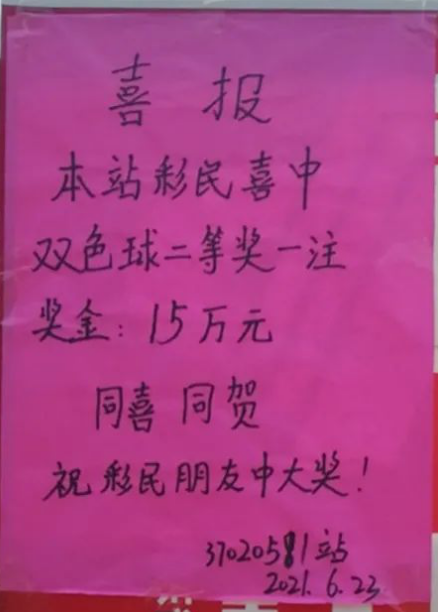 喜报
本站彩民喜中
双色球二等奖一注
奖金:15万元
同喜 同贺
祝彩民朋友中大奖!
37020581站
2021.6.23